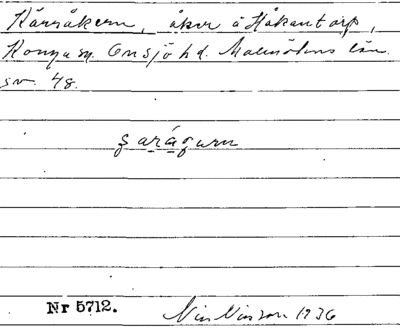 Kärråkern, åker å Håkantorp,
Konga sn. Onsjö hd. Malmöhus län.
sv. 48.
şaráguru
Nr 5712.
Nils Nilsson 1936